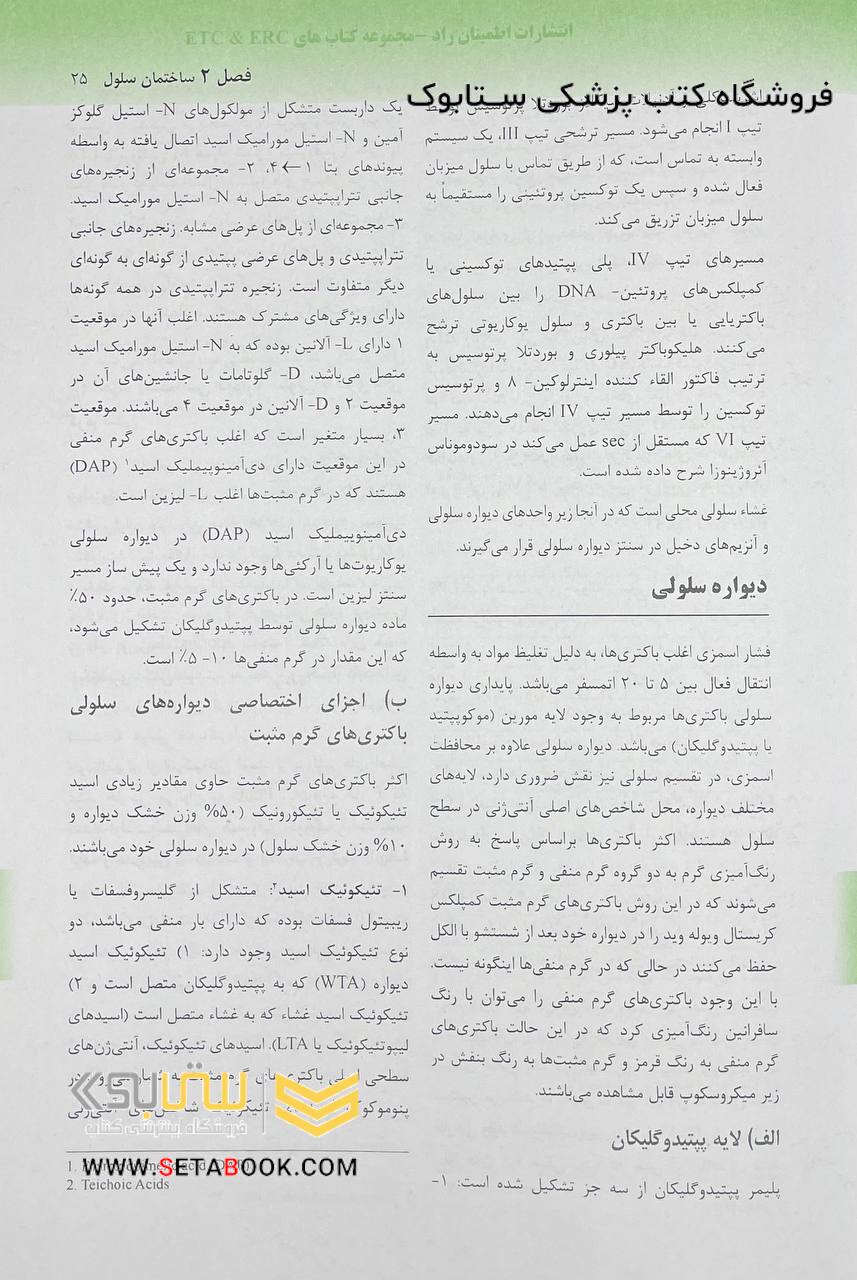 انتشارات اطمینان راد – مجموعه کتاب های ETC & ERC
فصل ۲ ساختمان سلول ۲۵
فروشگاه کتب پزشکی ستابوک
تیپ I انجام می‌شود. مسیر ترشحی تیپ III، یک سیستم
وابسته به تماس است، که از طریق تماس با سلول میزبان
فعال شده و سپس یک توکسین پروتئینی را مستقیماً به
سلول میزبان تزریق می‌کند.
مسیرهای تیپ IV، پلی پپتیدهای توکسینی یا
کمپلکس‌های پروتئین- DNA را بین سلول‌های
باکتریایی یا بین باکتری و سلول یوکاریوتی ترشح
می‌کنند. هلیکوباکتر پیلوری و بوردتلا پرتوسیس به
ترتیب فاکتور القاء کننده اینترلوکین- ۸ و پرتوسیس
توکسین را توسط مسیر تیپ IV انجام می‌دهند. مسیر
تیپ VI که مستقل از sec عمل می‌کند در سودوموناس
آئروژینوزا شرح داده شده است.
غشاء سلولی محلی است که در آنجا زیر واحدهای دیواره سلولی
و آنزیم‌های دخیل در سنتز دیواره سلولی قرار می‌گیرند.
دیواره سلولی
فشار اسمزی اغلب باکتری‌ها، به دلیل تغلیظ مواد به واسطه
انتقال فعال بین ۵ تا ۲۰ اتمسفر می‌باشد. پایداری دیواره
سلولی باکتری‌ها مربوط به وجود لایه مورین (موکوپپتید
یا پپتیدوگلیکان) می‌باشد. دیواره سلولی علاوه بر محافظت
اسمزی، در تقسیم سلولی نیز نقش ضروری دارد، لایه‌های
مختلف دیواره، محل شاخص‌های اصلی آنتی‌ژنی در سطح
سلول هستند. اکثر باکتری‌ها براساس پاسخ به روش
رنگ‌آمیزی گرم به دو گروه گرم منفی و گرم مثبت تقسیم
می‌شوند که در این روش باکتری‌های گرم مثبت کمپلکس
کریستال ویوله وید را در دیواره خود بعد از شستشو با الکل
حفظ می‌کنند در حالی که در گرم منفی‌ها اینگونه نیست.
با این وجود باکتری‌های گرم منفی را می‌توان با رنگ
سافرانین رنگ‌آمیزی کرد که در این حالت باکتری‌های
گرم منفی به رنگ قرمز و گرم مثبت‌ها به رنگ بنفش در
زیر میکروسکوپ قابل مشاهده می‌باشند.
الف) لایه پپتیدوگلیکان
پلیمر پپتیدوگلیکان از سه جز تشکیل شده است: ۱-
یک داربست متشکل از مولکول‌های N- استیل گلوکز
آمین و N- استیل مورامیک اسید اتصال یافته به واسطه
پیوندهای بتا ۱←۴، ۲- مجموعه‌ای از زنجیره‌های
جانبی تتراپپتیدی متصل به N- استیل مورامیک اسید.
۳- مجموعه‌ای از پل‌های عرضی مشابه. زنجیره‌های جانبی
تتراپپتیدی و پل‌های عرضی پپتیدی از گونه‌ای به گونه‌ای
دیگر متفاوت است. زنجیره تتراپپتیدی در همه گونه‌ها
دارای ویژگی‌های مشترک هستند. اغلب آنها در موقعیت
۱ دارای L- آلانین بوده که به N- استیل مورامیک اسید
متصل می‌باشد، D- گلوتامات یا جانشین‌های آن در
موقعیت ۲ و D- آلانین در موقعیت ۴ می‌باشند. موقعیت
۳، بسیار متغیر است که اغلب باکتری‌های گرم منفی
در این موقعیت دارای دی‌آمینوپیملیک اسید۱ (DAP)
هستند که در گرم مثبت‌ها اغلب L- لیزین است.
دی‌آمینوپیملیک اسید (DAP) در دیواره سلولی
یوکاریوت‌ها یا آرکئی‌ها وجود ندارد و یک پیش ساز مسیر
سنتز لیزین است. در باکتری‌های گرم مثبت، حدود ۵۰٪
ماده دیواره سلولی توسط پپتیدوگلیکان تشکیل می‌شود،
که این مقدار در گرم منفی‌ها ۱۰- ۵٪ است.
ب) اجزای اختصاصی دیواره‌های سلولی
باکتری‌های گرم مثبت
اکثر باکتری‌های گرم مثبت حاوی مقادیر زیادی اسید
تئیکوئیک یا تئیکورونیک (۵۰% وزن خشک دیواره و
۱۰% وزن خشک سلول) در دیواره سلولی خود می‌باشند.
۱- تئیکوئیک اسید۲: متشکل از گلیسروفسفات یا
ریبیتول فسفات بوده که دارای بار منفی می‌باشد، دو
نوع تئیکوئیک اسید وجود دارد: ۱) تئیکوئیک اسید
دیواره (WTA) که به پپتیدوگلیکان متصل است و ۲)
تئیکوئیک اسید غشاء که به غشاء متصل است (اسیدهای
لیپوتئیکوئیک یا LTA). اسیدهای تئیکوئیک، آنتی‌ژن‌های
سطحی اصلی باکتری‌های گرم
ستابوک
فروشگاه اینترنتی کتاب
WWW.SETABOOK.COM
2. Teichoic Acids